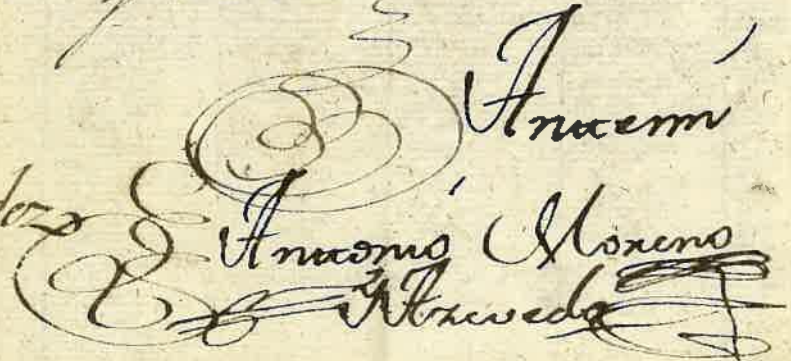 Ante mí
Antonio Moreno
y Azevedo